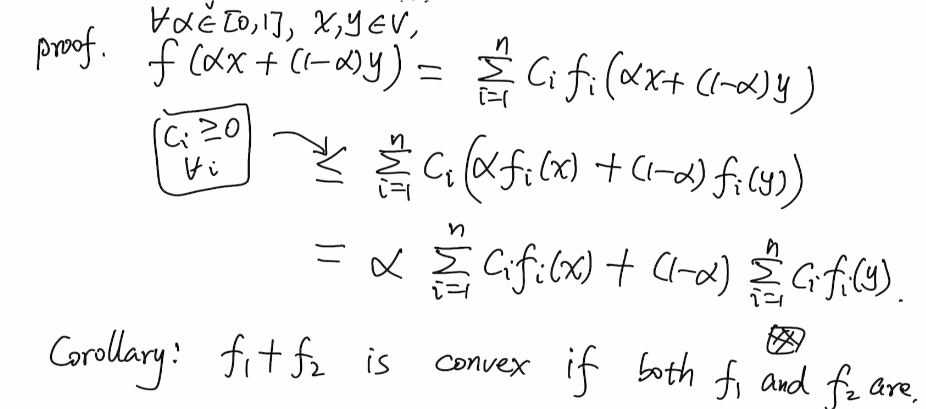 proof. ∀α∈[0,1], x,y∈V,
f(αx+(1-α)y) = ∑_{i=1}^{n} C_i f_i(αx+(1-α)y)
C_i ≥0
∀i
≤ ∑_{i=1}^{n} C_i(αf_i(x)+(1-α)f_i(y))
= α ∑_{i=1}^{n} C_i f_i(x) + (1-α) ∑_{i=1}^{n} C_i f_i(y).
Corollary: f_1+f_2 is convex if both f_1 and f_2 are.